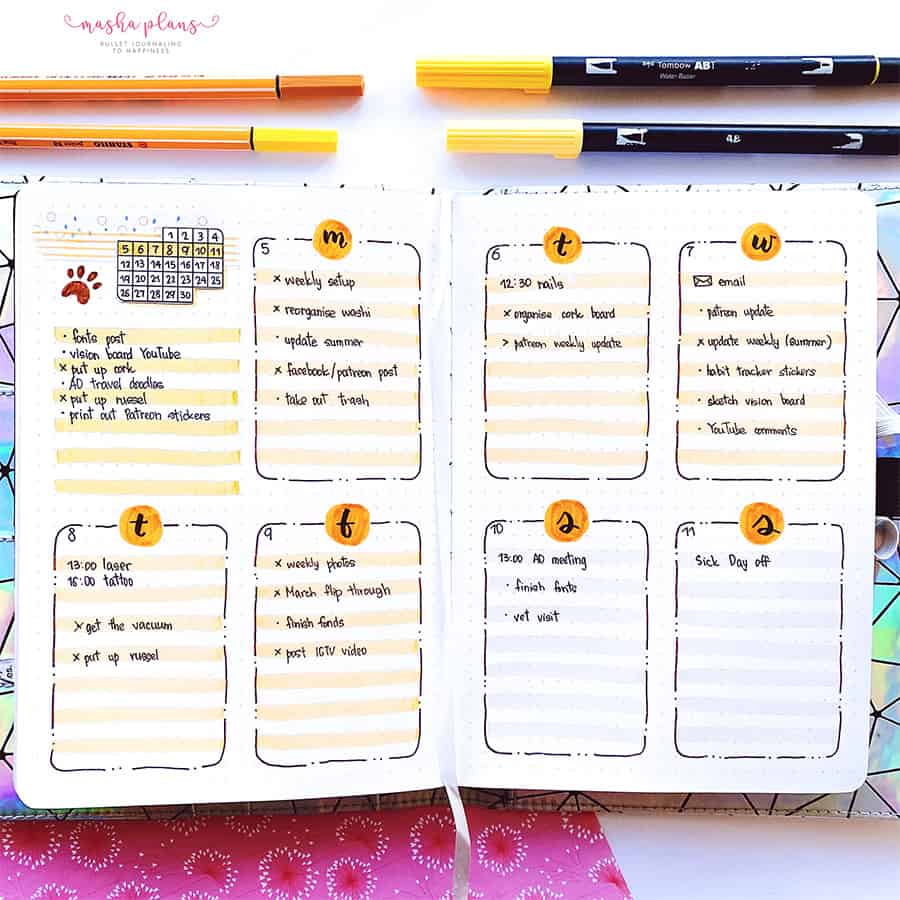 masha plans
BULLET JOURNALING
TO HAPPINESS
Tombow ABT
Water Based
STABILO
1 2 3 4
5 6 7 8 9 10 11
12 13 14 15 16 17 18
19 20 21 22 23 24 25
26 27 28 29 30
· fonts post
· vision board YouTube
x put up cork
· AD travel doodles
x put up russel
· print out Patreon stickers
m
5
x weekly setup
x reorganise washi
· update summer
x facebook/patreon post
· take out trash
t
6
12:30 nails
x organise cork board
> patreon weekly update
w
7
email
· patreon update
x update weekly (summer)
· habit tracker stickers
· sketch vision board
· YouTube comments
t
8
13:00 laser
16:00 tattoo
x get the vacuum
x put up russel
f
9
x weekly photos
x March flip through
· finish fonds
x post IGTV video
s
10
13:00 AD meeting
· finish fonts
· vet visit
s
11
Sick Day off